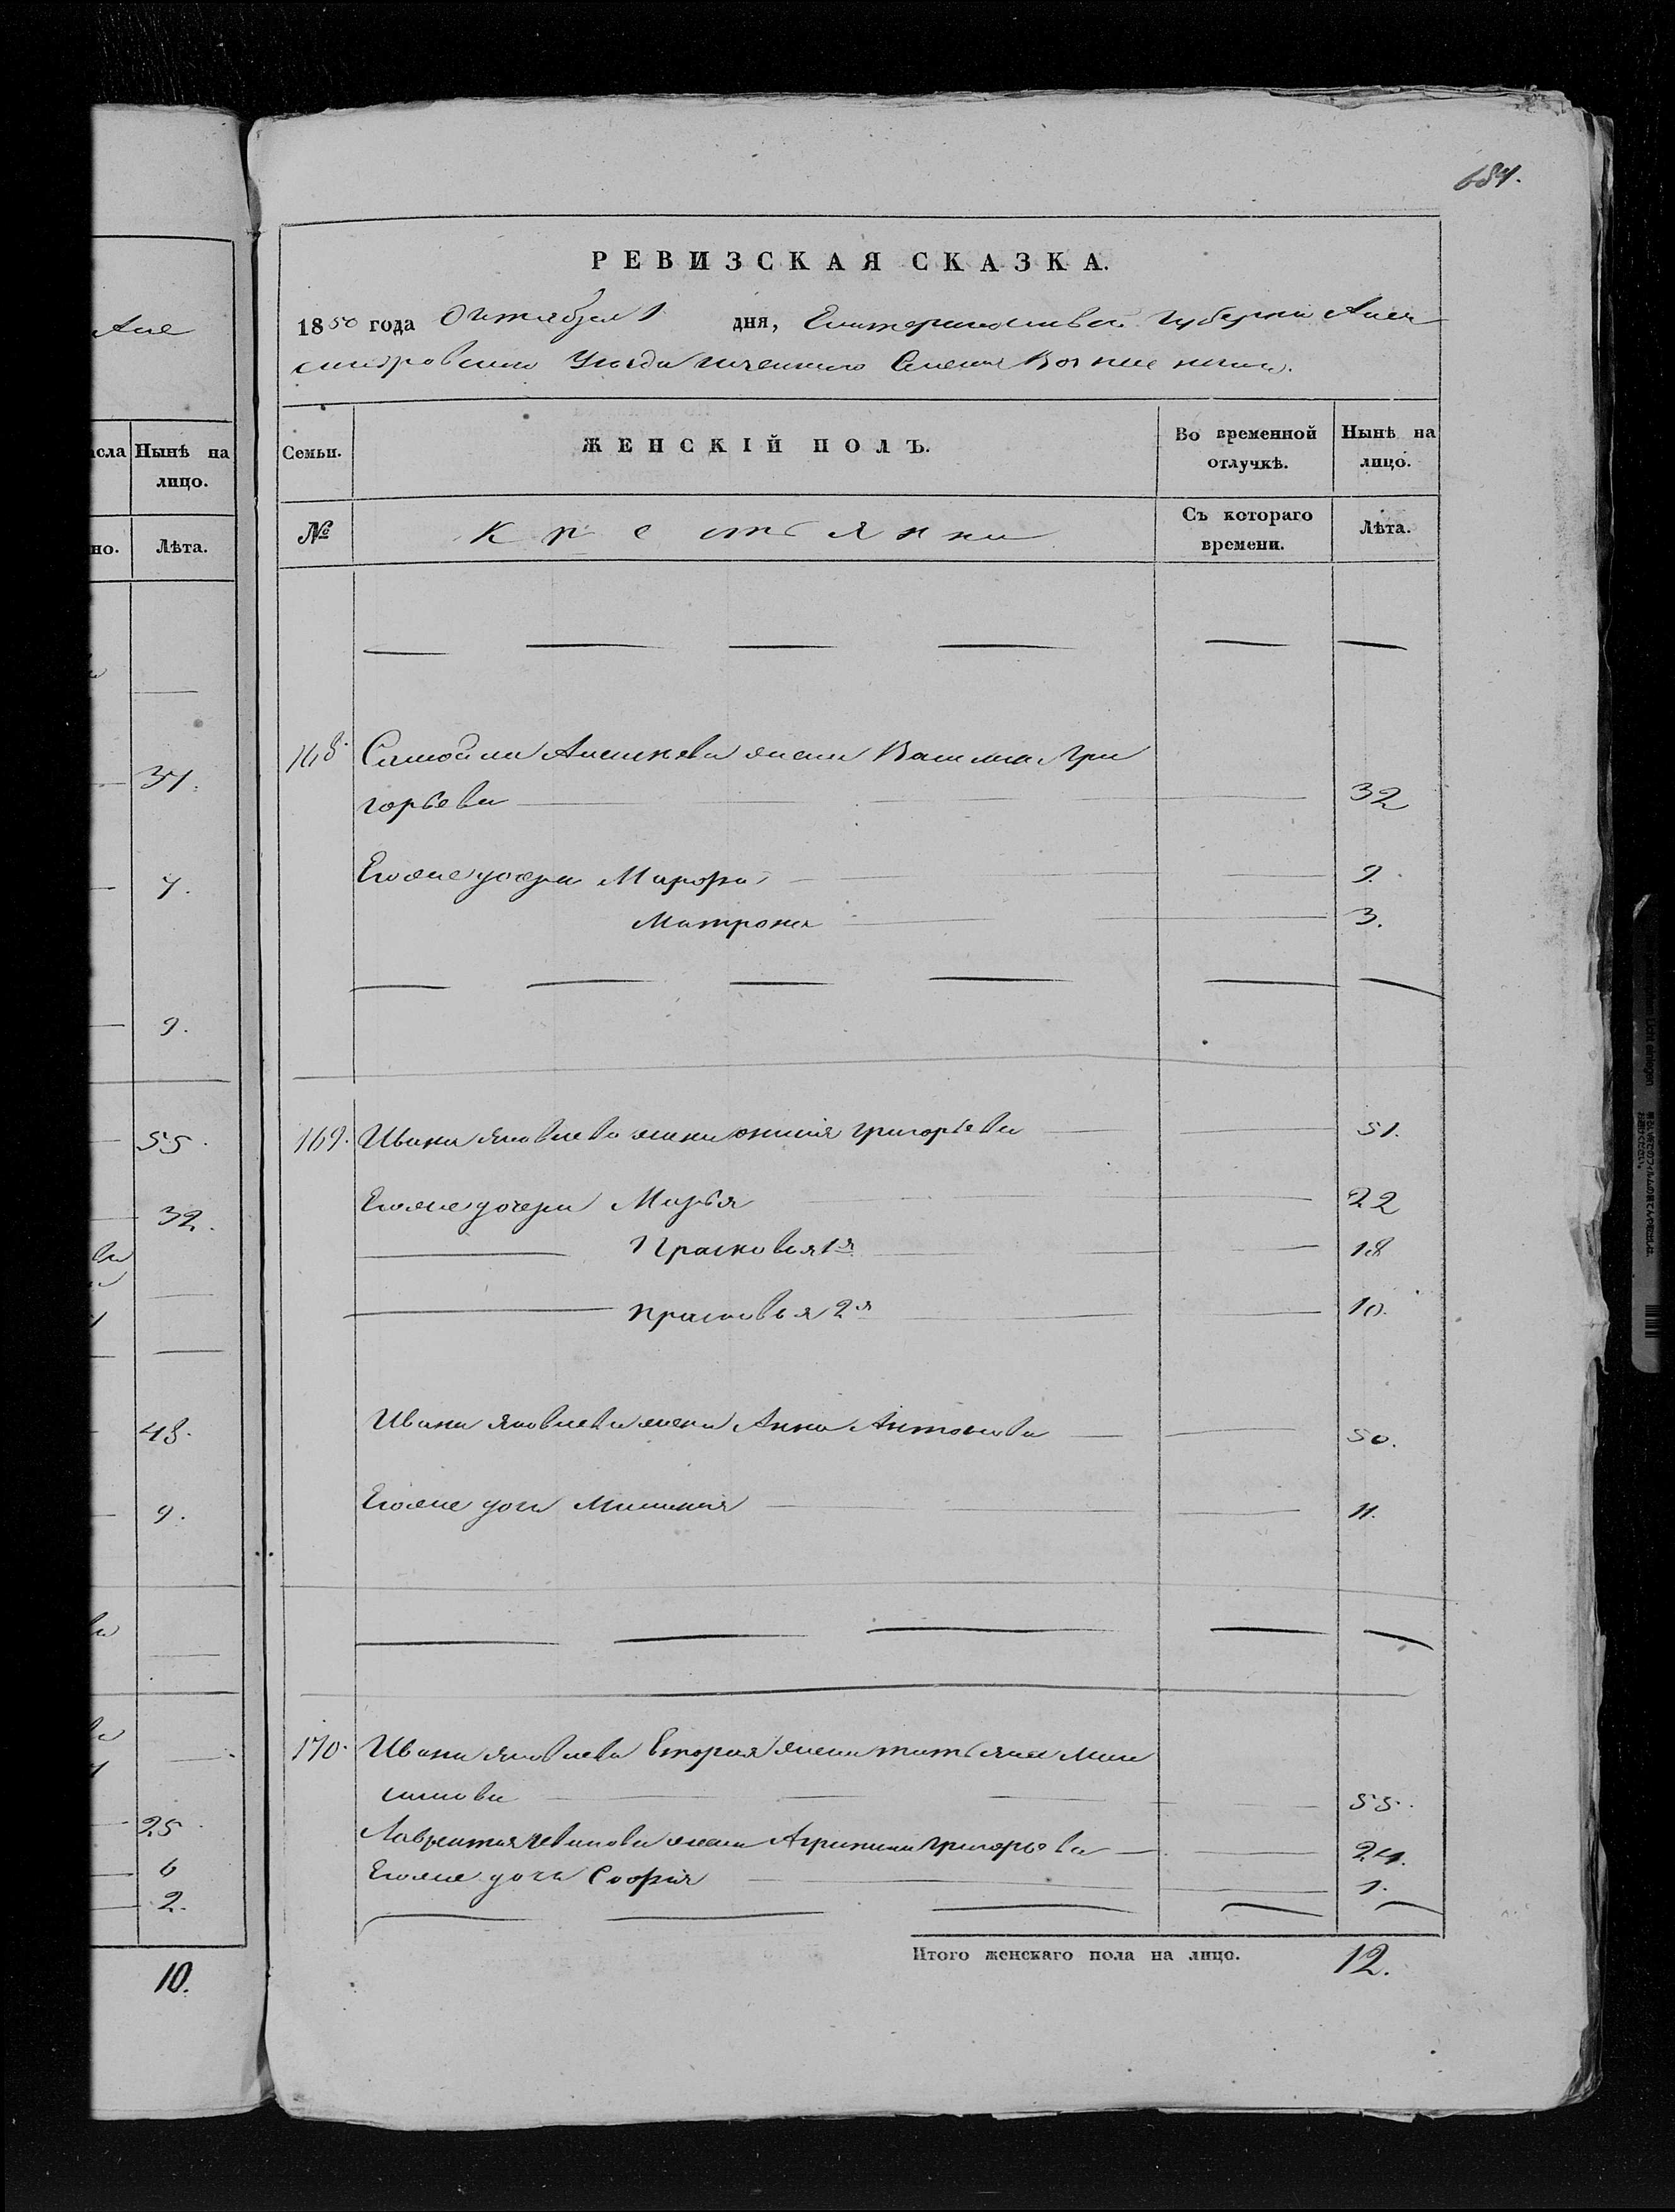 684.
РЕВИЗСКАЯ СКАЗКА.
1850 года Октября 1 дня, Екатеринославской Губернии Алек
сандровского Уезда казенного Селения Воз
асла
Нынѣ на лицо.
но.
Лѣта.
Семьи.
ЖЕНСКІЙ ПОЛЪ.
Во временной отлучкѣ.
Нынѣ на лицо.
№
Крестьянки
Съ котораго времени.
Лѣта.
168. Самойла Алексеева жена Василиса Гри
горьева 32
Его же дочери Марфа 9.
Матрона 3.
169. Ивана Яковлева жена Ксения Григорьева 51.
Его же дочери Марья 22
Прасковья 1я 18
Прасковья 2я 10.
Ивана Яковлева жена Анна Антонова 50.
Его же дочь 11.
170. Ивана Яковлева вторая жена Татьяна Мак
симова 55.
Лаврентия Иванова жена Агрипина Григорьева 24.
Его же дочь София 1.
Итого женскаго пола на лицо. 12.
37.
7.
9.
55.
32.
48.
9.
25.
6
2.
10.